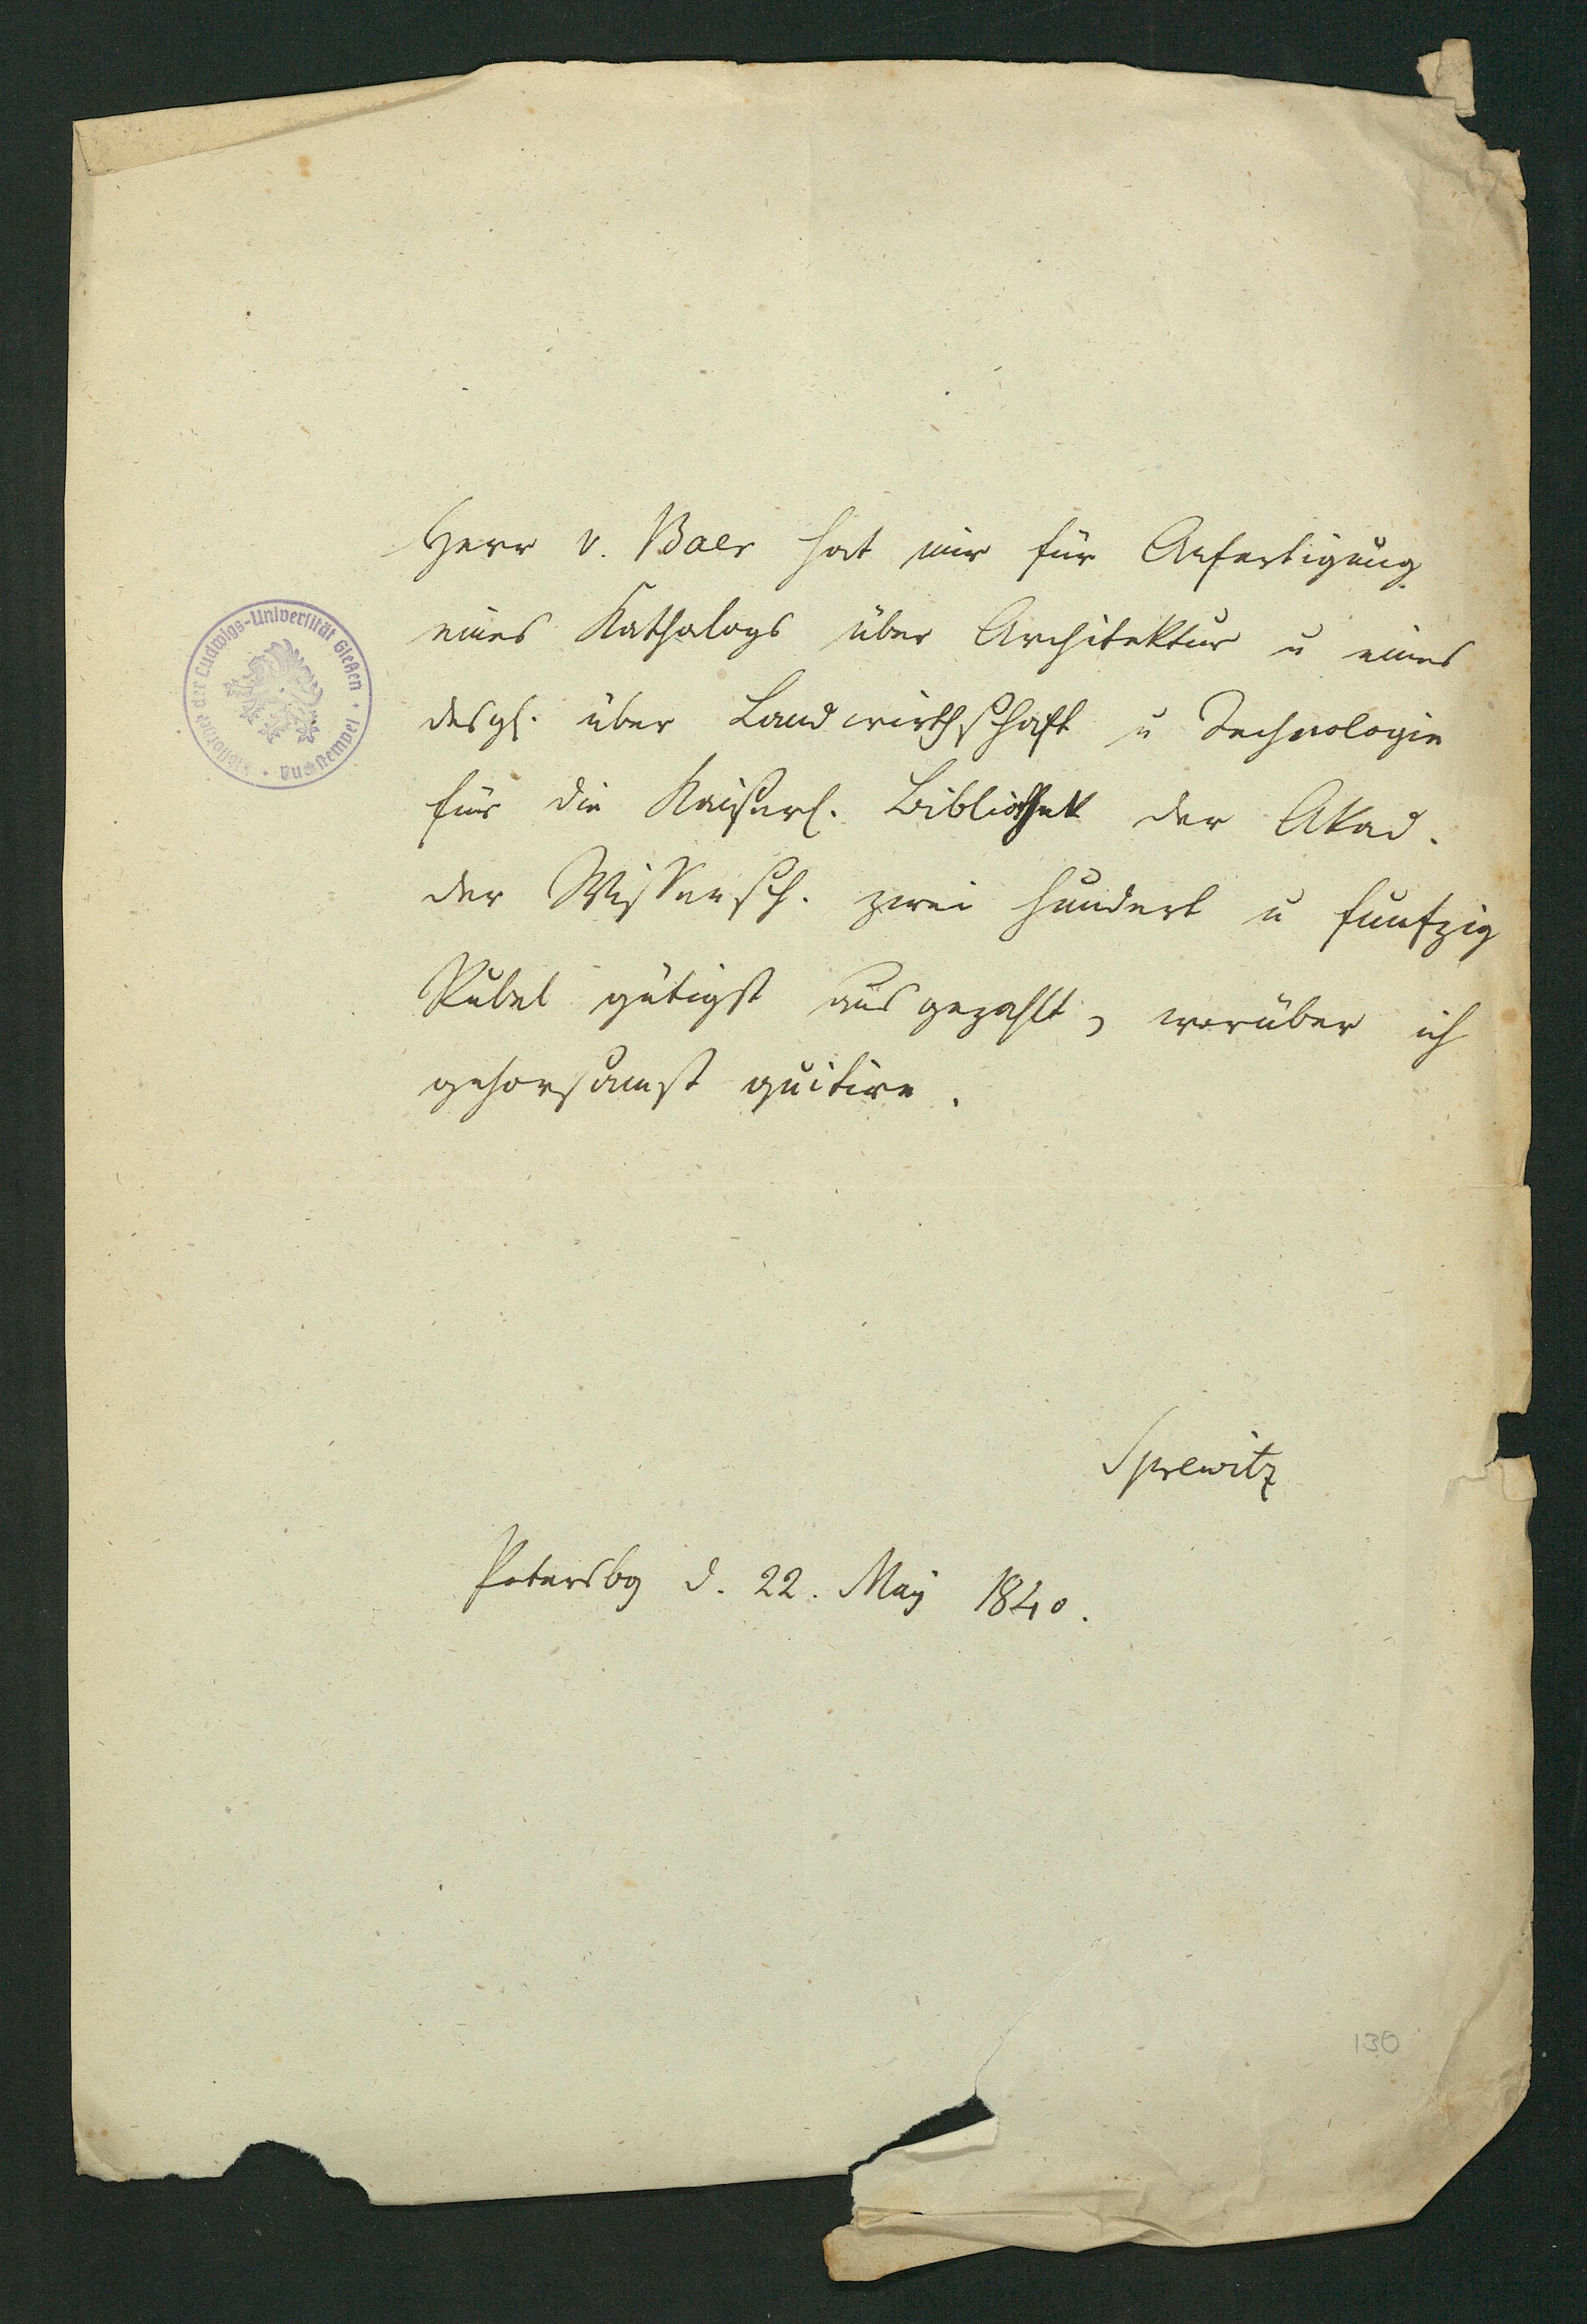 Herr v. Baer hat mir für Anfertigung
eines Kathalogs über Architektur u eines
desgl. über Landwirthschaft u Technologie
für die Kaiserl. Bibliothek der Akad.
der Wissensch. zwei hundert u funfzig
Rubel gütigst ausgezahlt, worüber ich
gehorsamst quitire.
Sprewitz
Petersbg d. 22. May 1840.
der Ludwigs-Universität Gießen
130